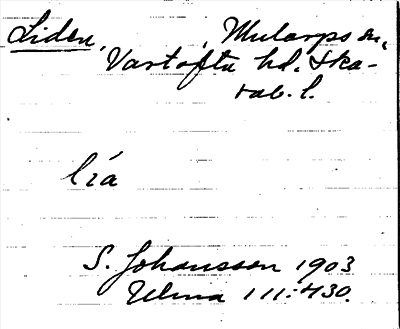 Liden, , Mularps sn,
Vartofta hd. Ska-
rab. l.
lía
S. Johansson 1903
Ulma 111:430.